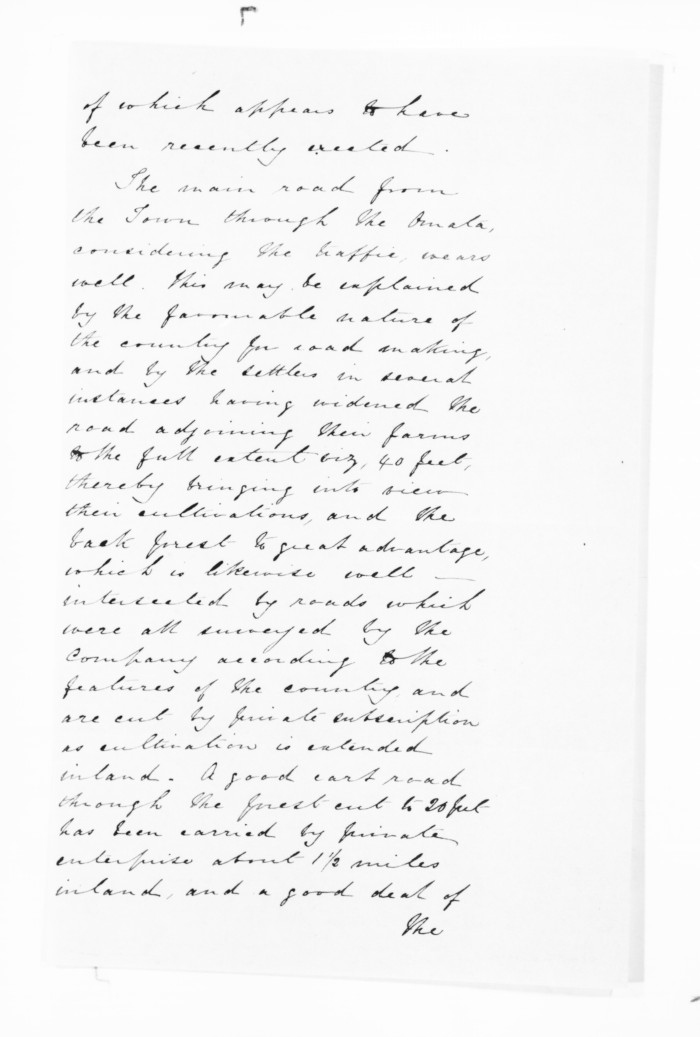 of which appears to have
been recently erected.
The main road from
the Town through the Omata,
considering the traffic, wears
well. This may be explained
by the favourable nature of
the country for road making,
and by the settlers in several
instances having widened the
road adjoining their farms
to the full extent viz, 40 feet,
thereby bringing into view
their cultivations, and the
back forest to great advantage,
which is likewise well —
intersected by roads which
were all surveyed by the
Company according to the
features of the country, and
are cut by private subscription
as cultivation is extended
inland. A good cart road
through the forest cut to 20 feet
has been carried by private
enterprise about 1½ miles
inland, and a good deal of
the